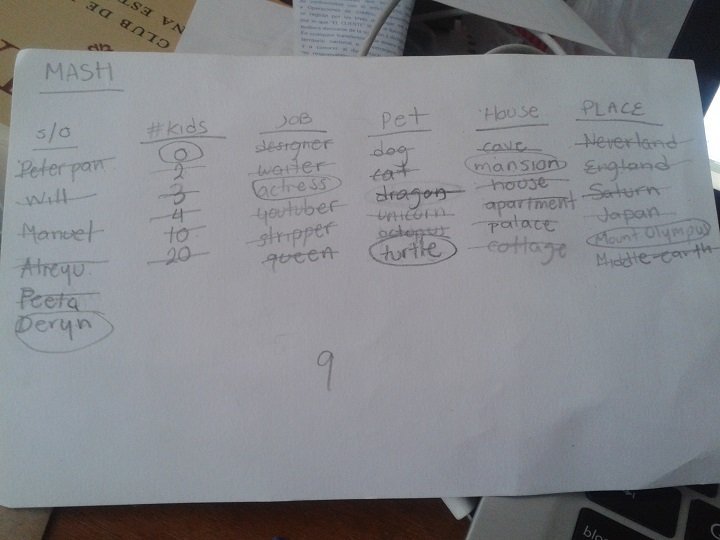 CLUB DE
NA EST
MASH
s/o
Peter pan
Will
Manuel
Atreyu
Peeta
Deryn
#kids
0
2
3
4
10
20
JOB
designer
waiter
actress
youtuber
stripper
queen
Pet
dog
cat
dragon
unicorn
octopus
turtle
House
cave
mansion
house
apartment
palace
cottage
PLACE
Neverland
England
Saturn
Japan
Mount Olympus
Middle-earth
9